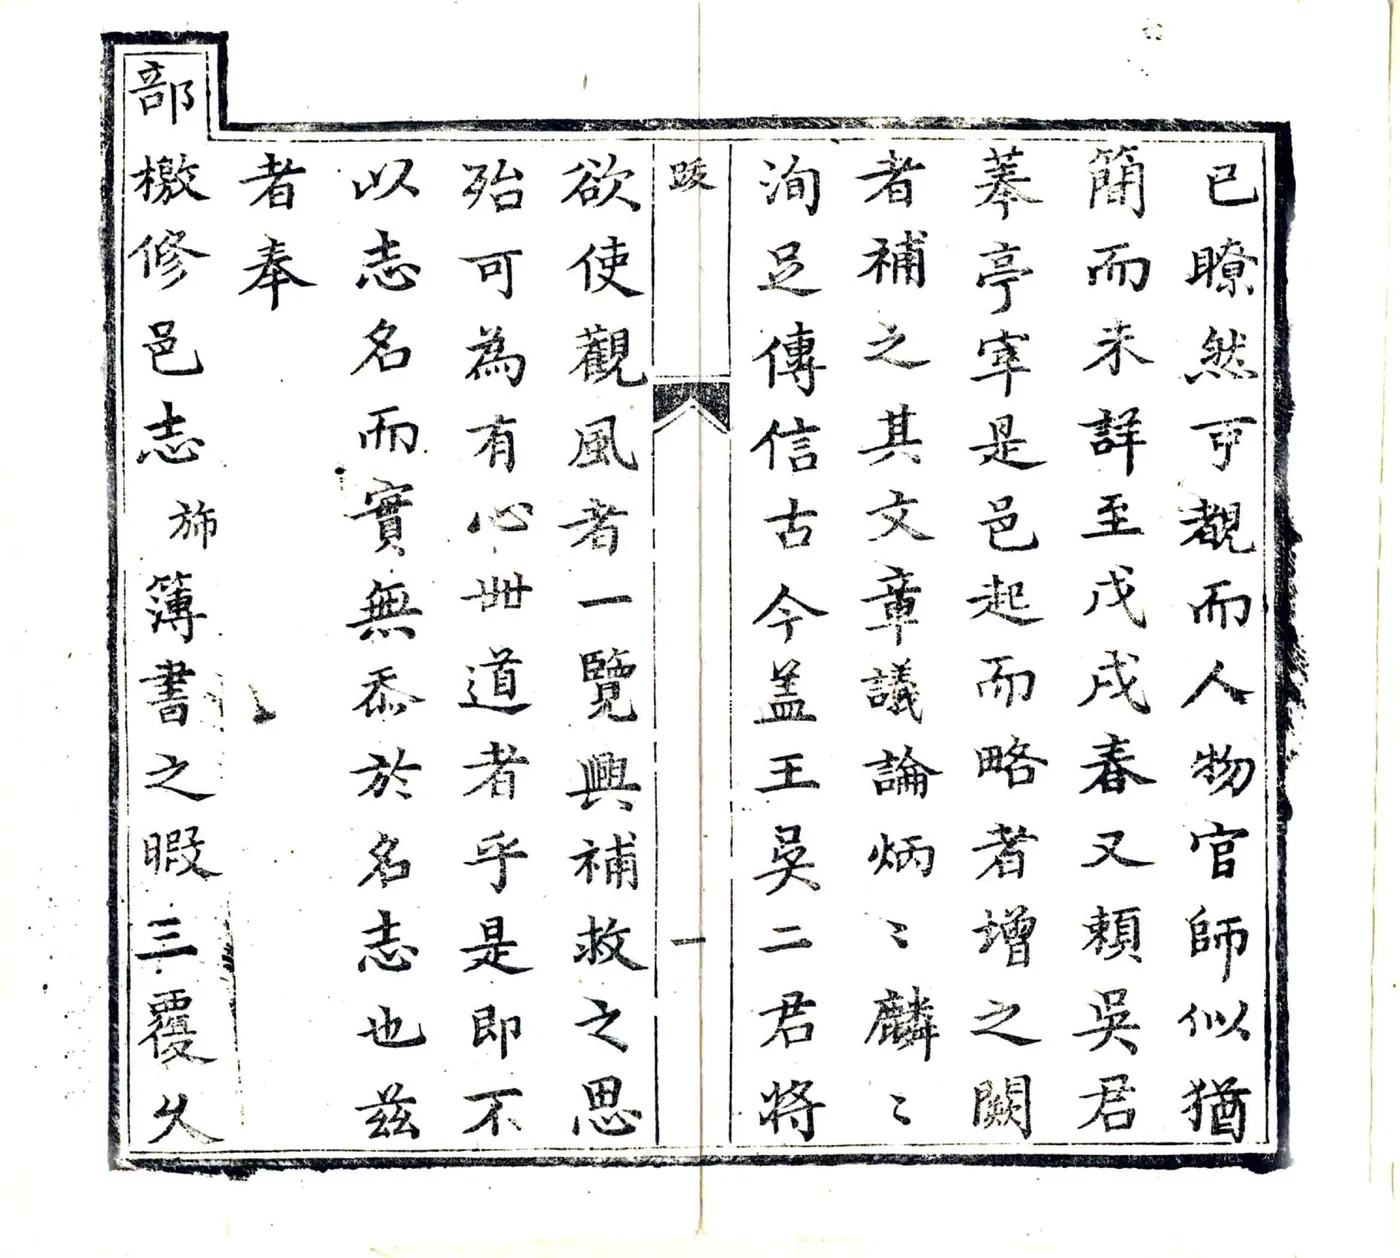 已瞭然可覩而人物官師似猶
簡而未詳至戊戌春又頼吳君
摹亭宰是邑起而略者增之闕
者補之其文章議論炳〻麟〻
洵足傳信古今盖王吳二君將
跋
一
欲使觀風者一覽興補救之思
殆可為有心世道者乎是即不
以志名而實無忝於名志也茲
者奉
部檄修邑志旆簿書之暇三覆久